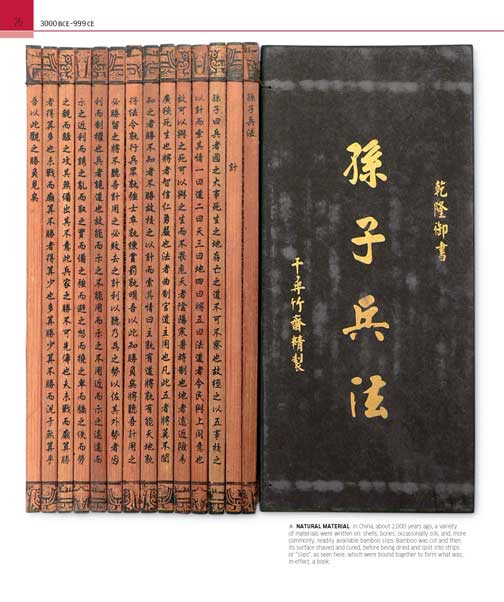 26
3000 BCE–999 CE
乾隆御書
孫子兵法
千年竹齋精製
孫子兵法
計
孫子曰兵者國之大事死生之地存亡之道不可不察也故經之以五事校之
以計而索其情一曰道二曰天三曰地四曰將五曰法道者令民與上同意也
故可以與之死可以與之生而不畏危天者陰陽寒暑時制也地者遠近險易
廣狹死生也將者智信仁勇嚴也法者曲制官道主用也凡此五者將莫不聞
知之者勝不知者不勝故校之以計而索其情曰主孰有道將孰有能天地孰
得法令孰行兵眾孰強士卒孰練賞罰孰明吾以此知勝負矣將聽吾計用之
必勝留之將不聽吾計用之必敗去之計利以聽乃為之勢以佐其外勢者因
利而制權也兵者詭道也故能而示之不能用而示之不用近而示之遠遠而
示之近利而誘之亂而取之實而備之強而避之怒而撓之卑而驕之佚而勞
之親而離之攻其無備出其不意此兵家之勝不可先傳也夫未戰而廟算勝
者得算多也未戰而廟算不勝者得算少也多算勝少算不勝而況于無算乎
吾以此觀之勝負見矣
▲ NATURAL MATERIAL In China, about 2,000 years ago, a variety
of materials were written on: shells, bones, occasionally silk, and, more
commonly, readily available bamboo slips. Bamboo was cut and then
its surface shaved and cured, before being dried and split into strips
or "slips", as seen here, which were bound together to form what was,
in effect, a book.